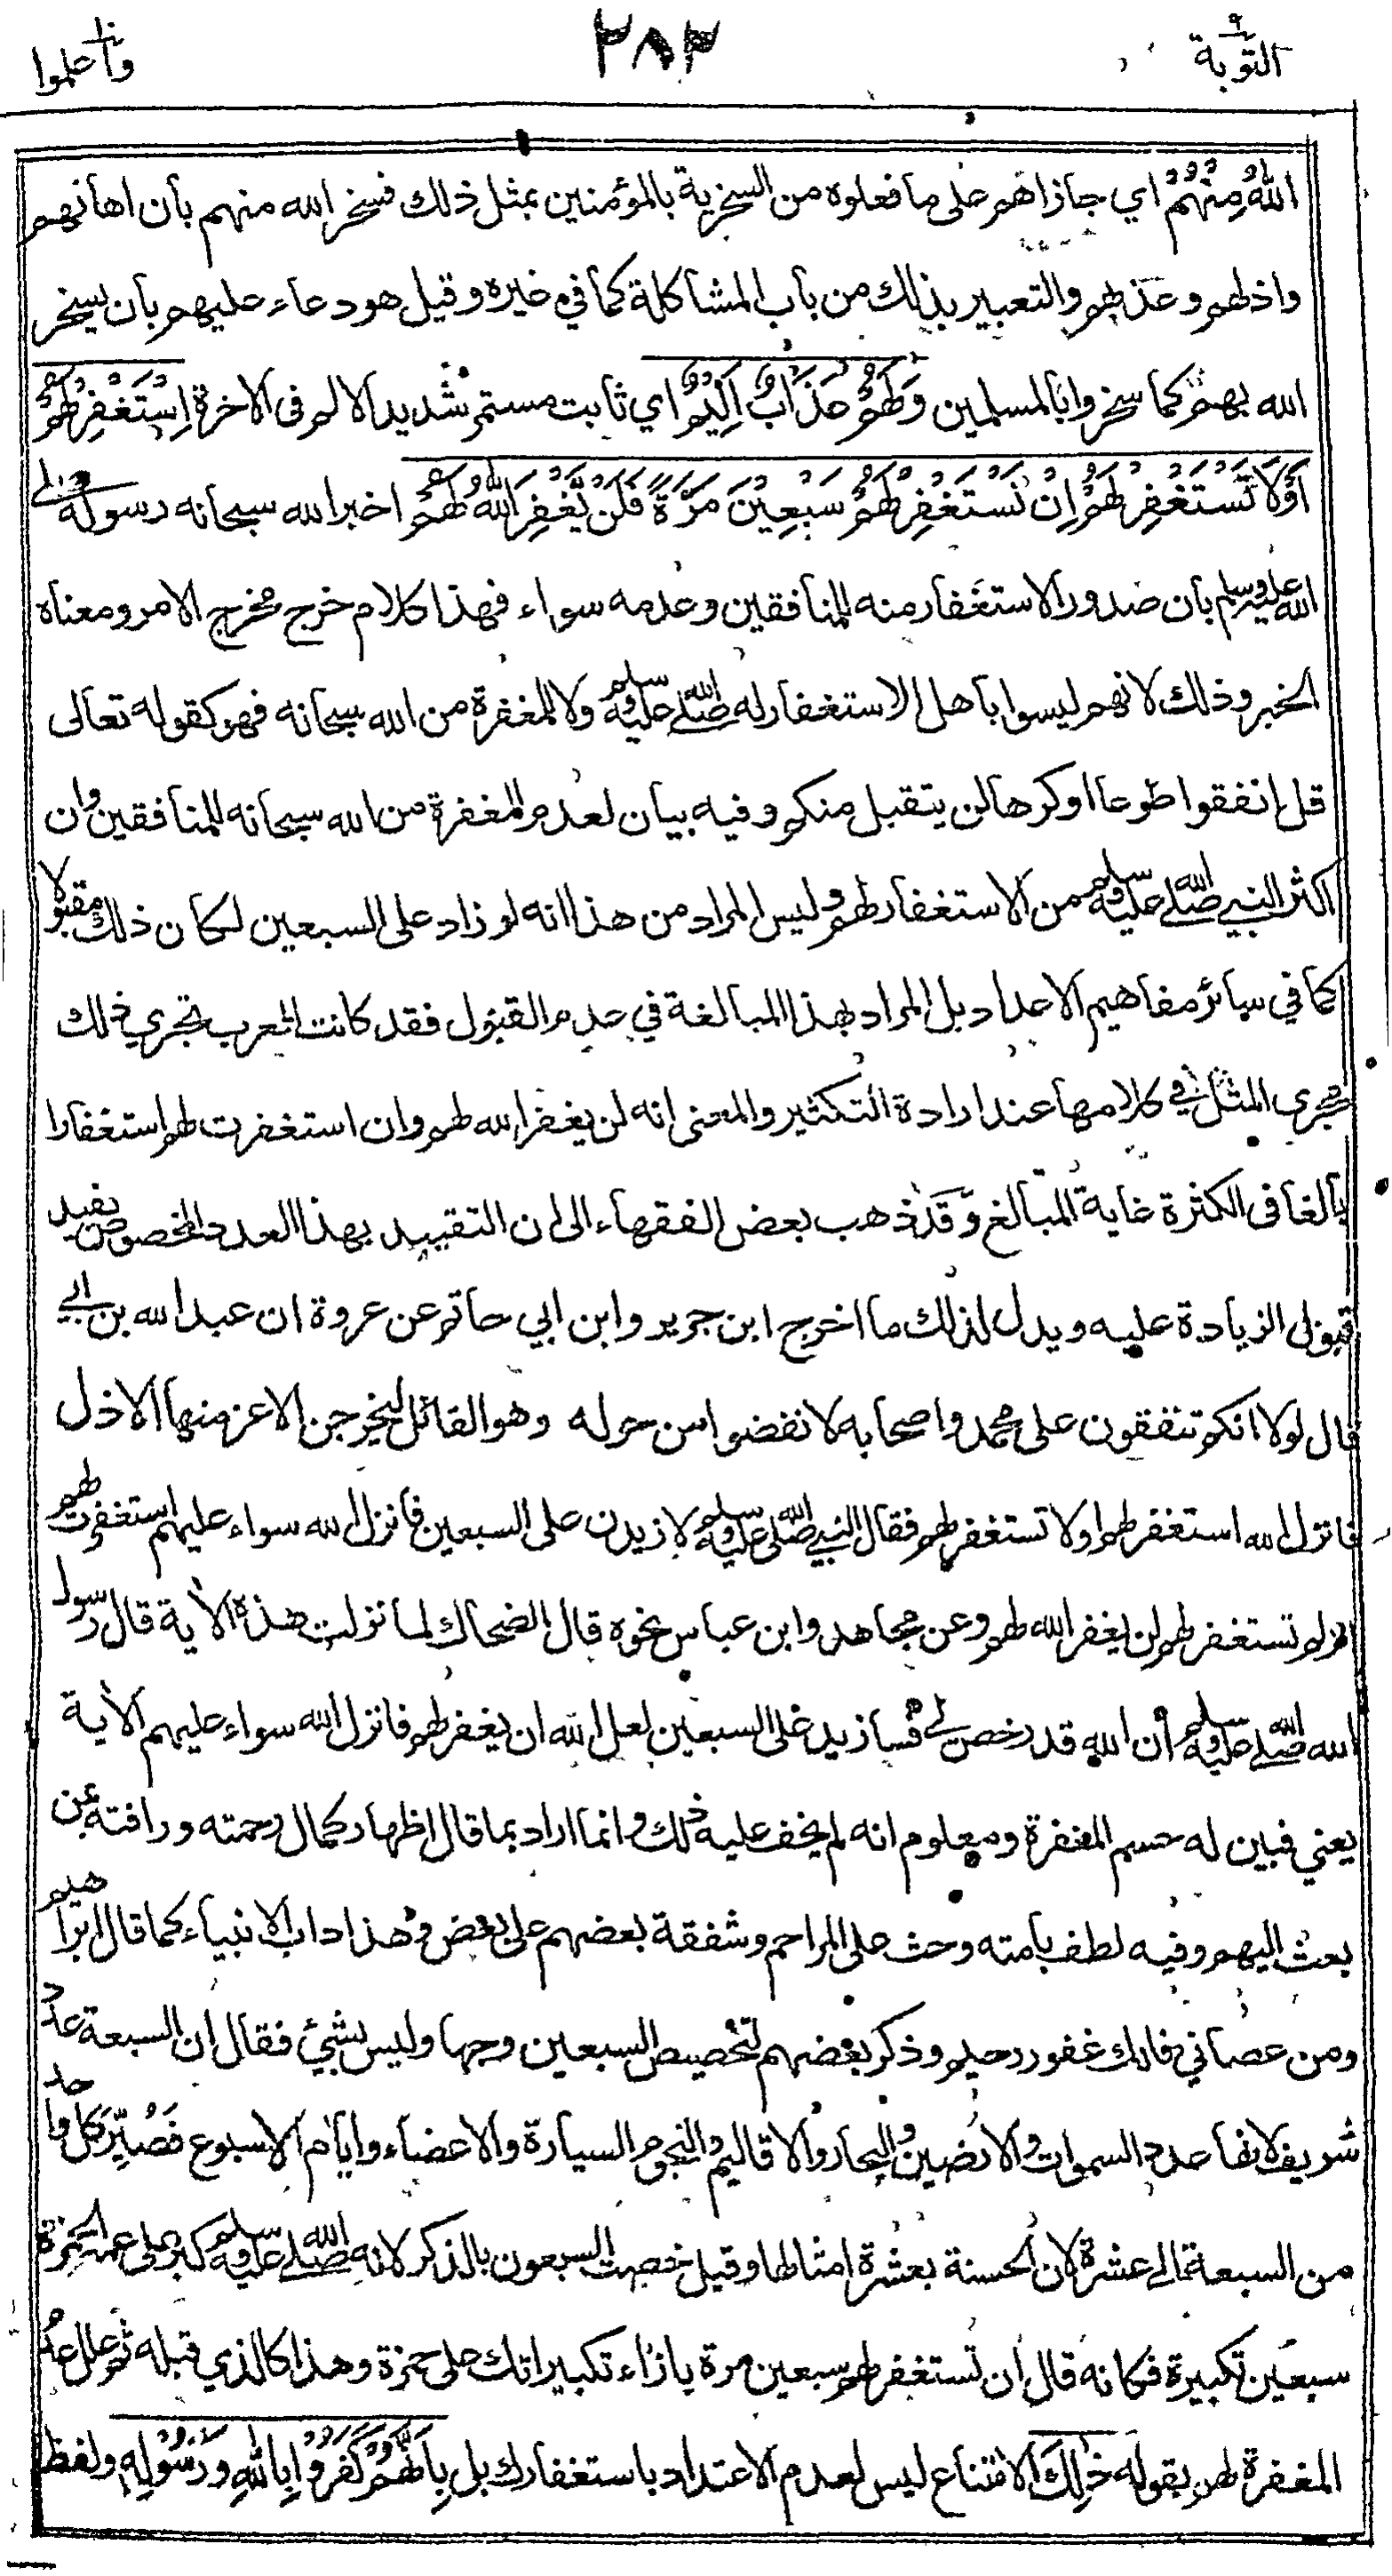 التوبة ٩
٢٨٣
واعلموا ١٠
اللَّهُ مِنْهُمْ اي جازاهم على ما فعلوه من السخرية بالمؤمنين بمثل ذلك فسخر الله منهم بأن اهانهم
واذلهم وعذبهم والتعبير بذلك من باب المشاكلة كما في غيره وقيل هو دعاء عليهم بان يسخر
الله بهم كما سخروا بالمسلمين وَلَهُمْ عَذَابٌ اَلِيْمٌ اي ثابت مستمر شديد الالم في الاخرة اِسْتَغْفِرْ لَهُمْ
اَوْ لَا تَسْتَغْفِرْ لَهُمْ اِنْ تَسْتَغْفِرْ لَهُمْ سَبْعِيْنَ مَرَّةً فَلَنْ يَّغْفِرَ اللهُ لَهُمْ اخبر الله سبحانه رسوله صلى
الله عليه وسلم بان صدور الاستغفار منه للمنافقين وعدمه سواء فهذا كلام خرج مخرج الامر ومعناه
الخبر وذلك لانهم ليسوا باهل الاستغفار له صلى الله عليه وسلم ولا للمغفرة من الله سبحانه فهو كقوله تعالى
قل انفقوا طوعا او كرها لن يتقبل منكم وفيه بيان لعدم المغفرة من الله سبحانه للمنافقين وان
اكثر النبي صلى الله عليه وسلم من الاستغفار لهم وليس المراد من هذا انه لو زاد على السبعين لكان ذلك مقبولا
كما في سائر مفاهيم الاعداد بل المراد بهذا المبالغة في عدم القبول فقد كانت العرب تجري ذلك
مجرى المثل في كلامها عند ارادة التكثير والمعنى انه لن يغفر الله لهم وان استغفرت لهم استغفارا
بالغا في الكثرة غاية المبالغ وقد ذهب بعض الفقهاء الى ان التقييد بهذا العدد المخصوص يفيد
قبول الزيادة عليه ويدل لذلك ما اخرج ابن جرير وابن ابي حاتم عن عروة ان عبد الله بن ابي
قال لولا انكم تنفقون على محمد واصحابه لانفضوا من حوله وهو القائل ليخرجن الاعز منها الاذل
فانزل الله استغفر لهم او لا تستغفر لهم فقال النبي صلى الله عليه وسلم لازيدن على السبعين فانزل الله سواء عليهم استغفرت لهم
ام لم تستغفر لهم لن يغفر الله لهم وعن مجاهد وابن عباس نحوه قال الضحاك لما نزلت هذه الأية قال رسول
الله صلى الله عليه وسلم أن الله قد رخص لي فسازيد على السبعين لعل الله ان يغفر لهم فانزل الله سواء عليهم الأية
يعني فبين له حسم المغفرة ومعلوم انه لم يخف عليه ذلك وانما اراد بما قال اظهار كمال رحمته ورافته بمن
بعث اليهم وفيه لطف بامته وحث على المراحم وشفقة بعضهم على بعض وهذا داب الانبياء كما قال ابراهيم
ومن عصاني فانك غفور رحيم وذكر بعضهم لتخصيص السبعين وجها وليس بشيئ فقال ان السبعة عدد
شريف لانها عدد السموات والارضين والبحار والاقاليم والنجوم السيارة والاعضاء وايام الاسبوع فَصُيِّرَ كل واحد
من السبعة الى عشرة لان الحسنة بعشرة امثالها وقيل خصت السبعون بالذكر لانه صلى الله عليه وسلم كبر على عمه الحمزة
سبعين تكبيرة فكانه قال ان تستغفر لهم سبعين مرة بازاء تكبيراتك على حمزة وهذا كالذي قبله ثم علل عدم
المغفرة لهم بقوله ذٰلِكَ الامتناع ليس لعدم الاعتداد باستغفارك بل بِاَنَّهُمْ كَفَرُوْا بِاللهِ وَرَسُوْلِهٖ ولفظ